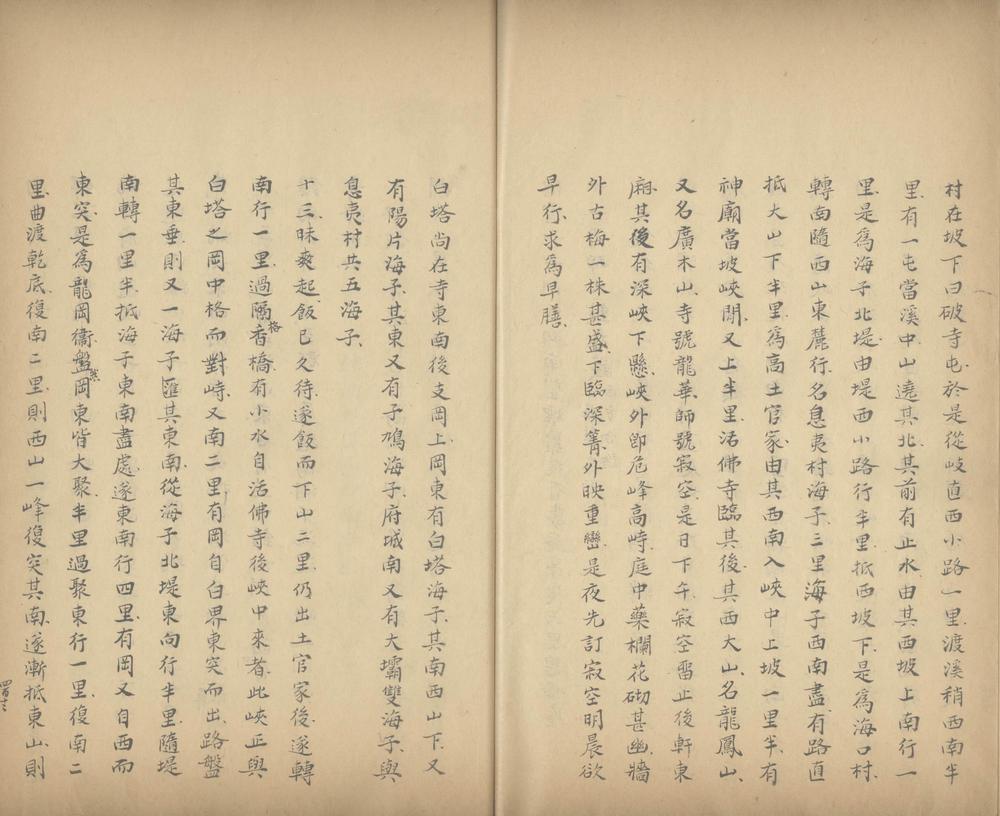 村在坡下曰破寺屯於是從岐直西小路一里渡溪稍西南半
里有一屯當溪中山遶其北其前有止水由其西坡上南行一
里是爲海子北堤由堤西小路行半里抵西坡下是爲海口村
轉南隨西山東麓行名息夷村海子三里海子西南盡有路直
抵大山下半里爲高土官家由其西南入峽中上坡一里半有
神廟當坡峽間又上半里活佛寺臨其後其西大山名龍鳳山
又名廣木山寺號龍華師號寂空是日下午寂空留止後軒東
廂其後有深峽下懸峽外即危峰高峙庭中藥欄花砌甚幽牆
外古梅一株甚盛下臨深箐外映重巒是夜先訂寂空明晨欲
早行求爲早膳
白塔尚在寺東南後支岡上岡東有白塔海子其南西山下又
有陽片海子其東又有子鳩海子府城南又有大壩雙海子與
息夷村共五海子
十三昧爽起飯已久待遂飯而下山二里仍出土官家後遂轉
南行一里過隔香格橋有小水自活佛寺後峽中來者此峽正與
白塔之岡中格而對峙又南二里有岡自白界東突而出路盤
其東垂則又一海子匯其東南從海子北堤東向行半里隨堤
南轉一里半抵海子東南盡處遂東南行四里有岡又自西而
東突是爲龍岡衞盤岡東皆大聚半里過聚東行一里復南二
里曲渡乾底復南二里則西山一峰復突其南遂漸抵東山則